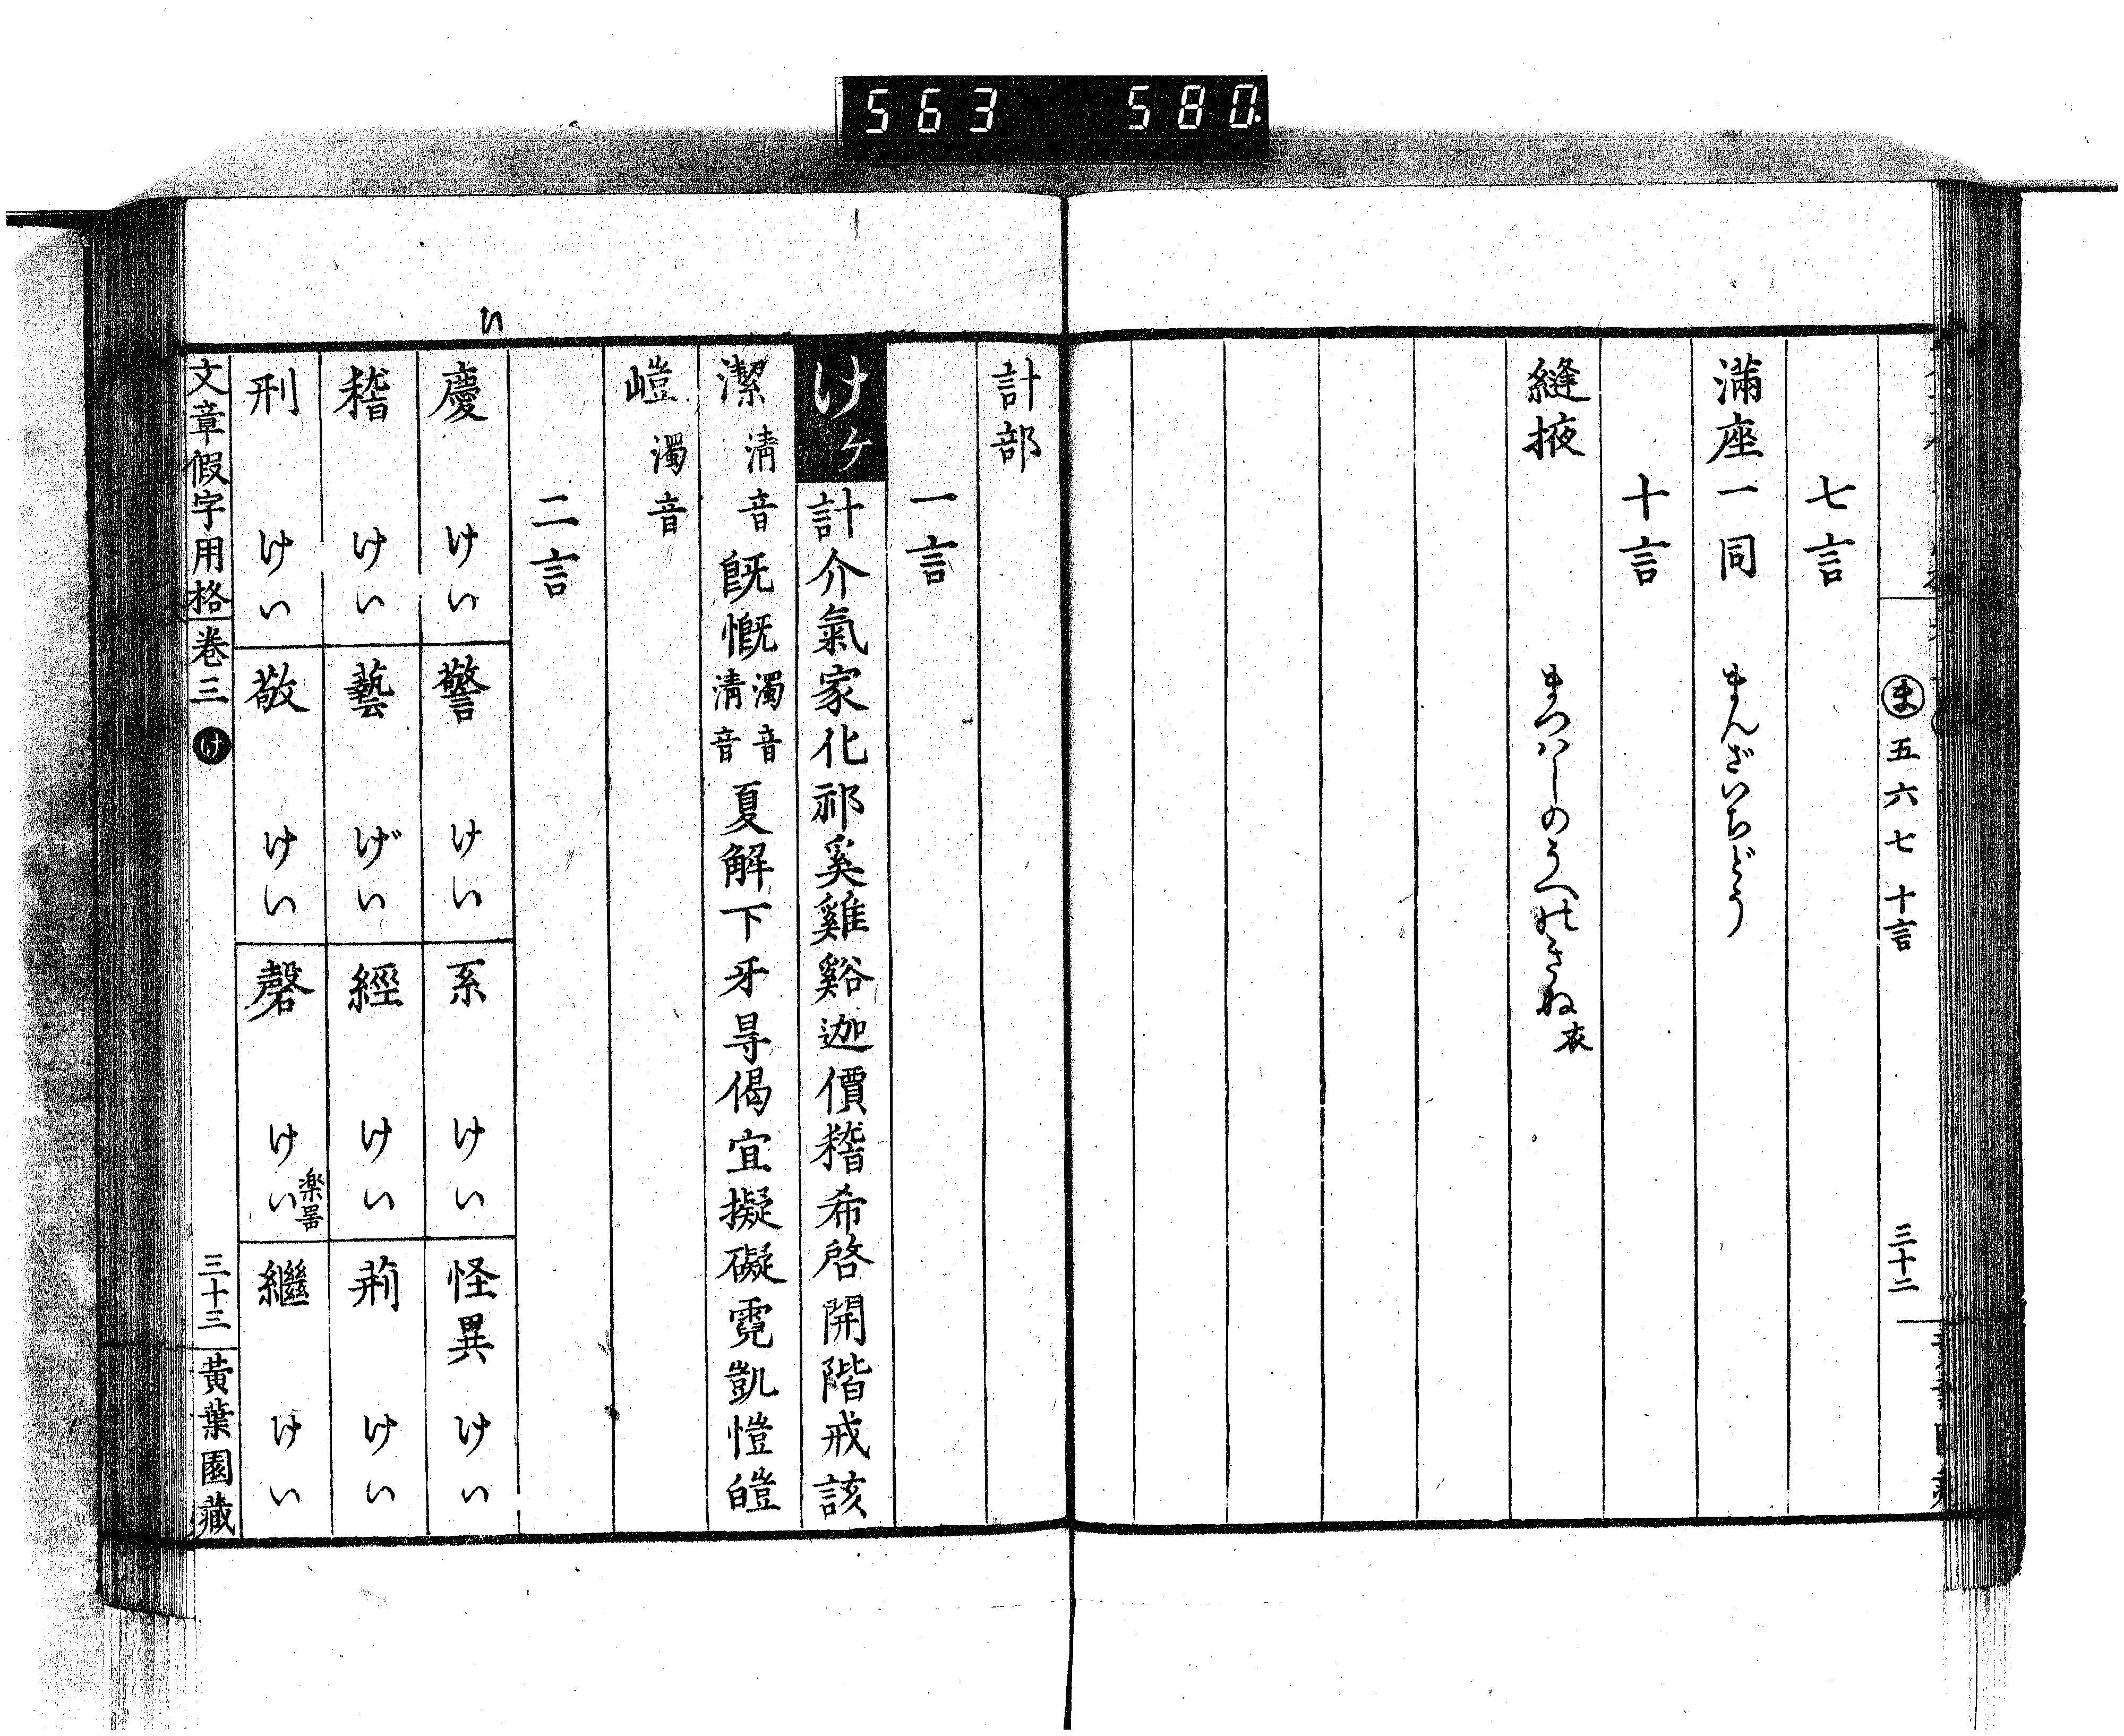 563 580
ま 五六七十言
三十二
七言
滿座一同 まんざいちどう
十言
縫掖 まつはしのうへのきぬ 衣
計部
一言
けケ 計介氣家化祁奚雞谿迦價稽希啓開階戒該
潔 清音 既慨 濁音清音 夏解下牙㝵偈宜擬礙霓凱愷皚
嵦 濁音
二言
い
慶 けい 警 けい 系 けい 怪異 けい
稽 けい 藝 げい 經 けい 荊 けい
刑 けい 敬 けい 磬 けい 楽器 繼 けい
文章假字用格 卷三 け 三十三 黃葉園藏